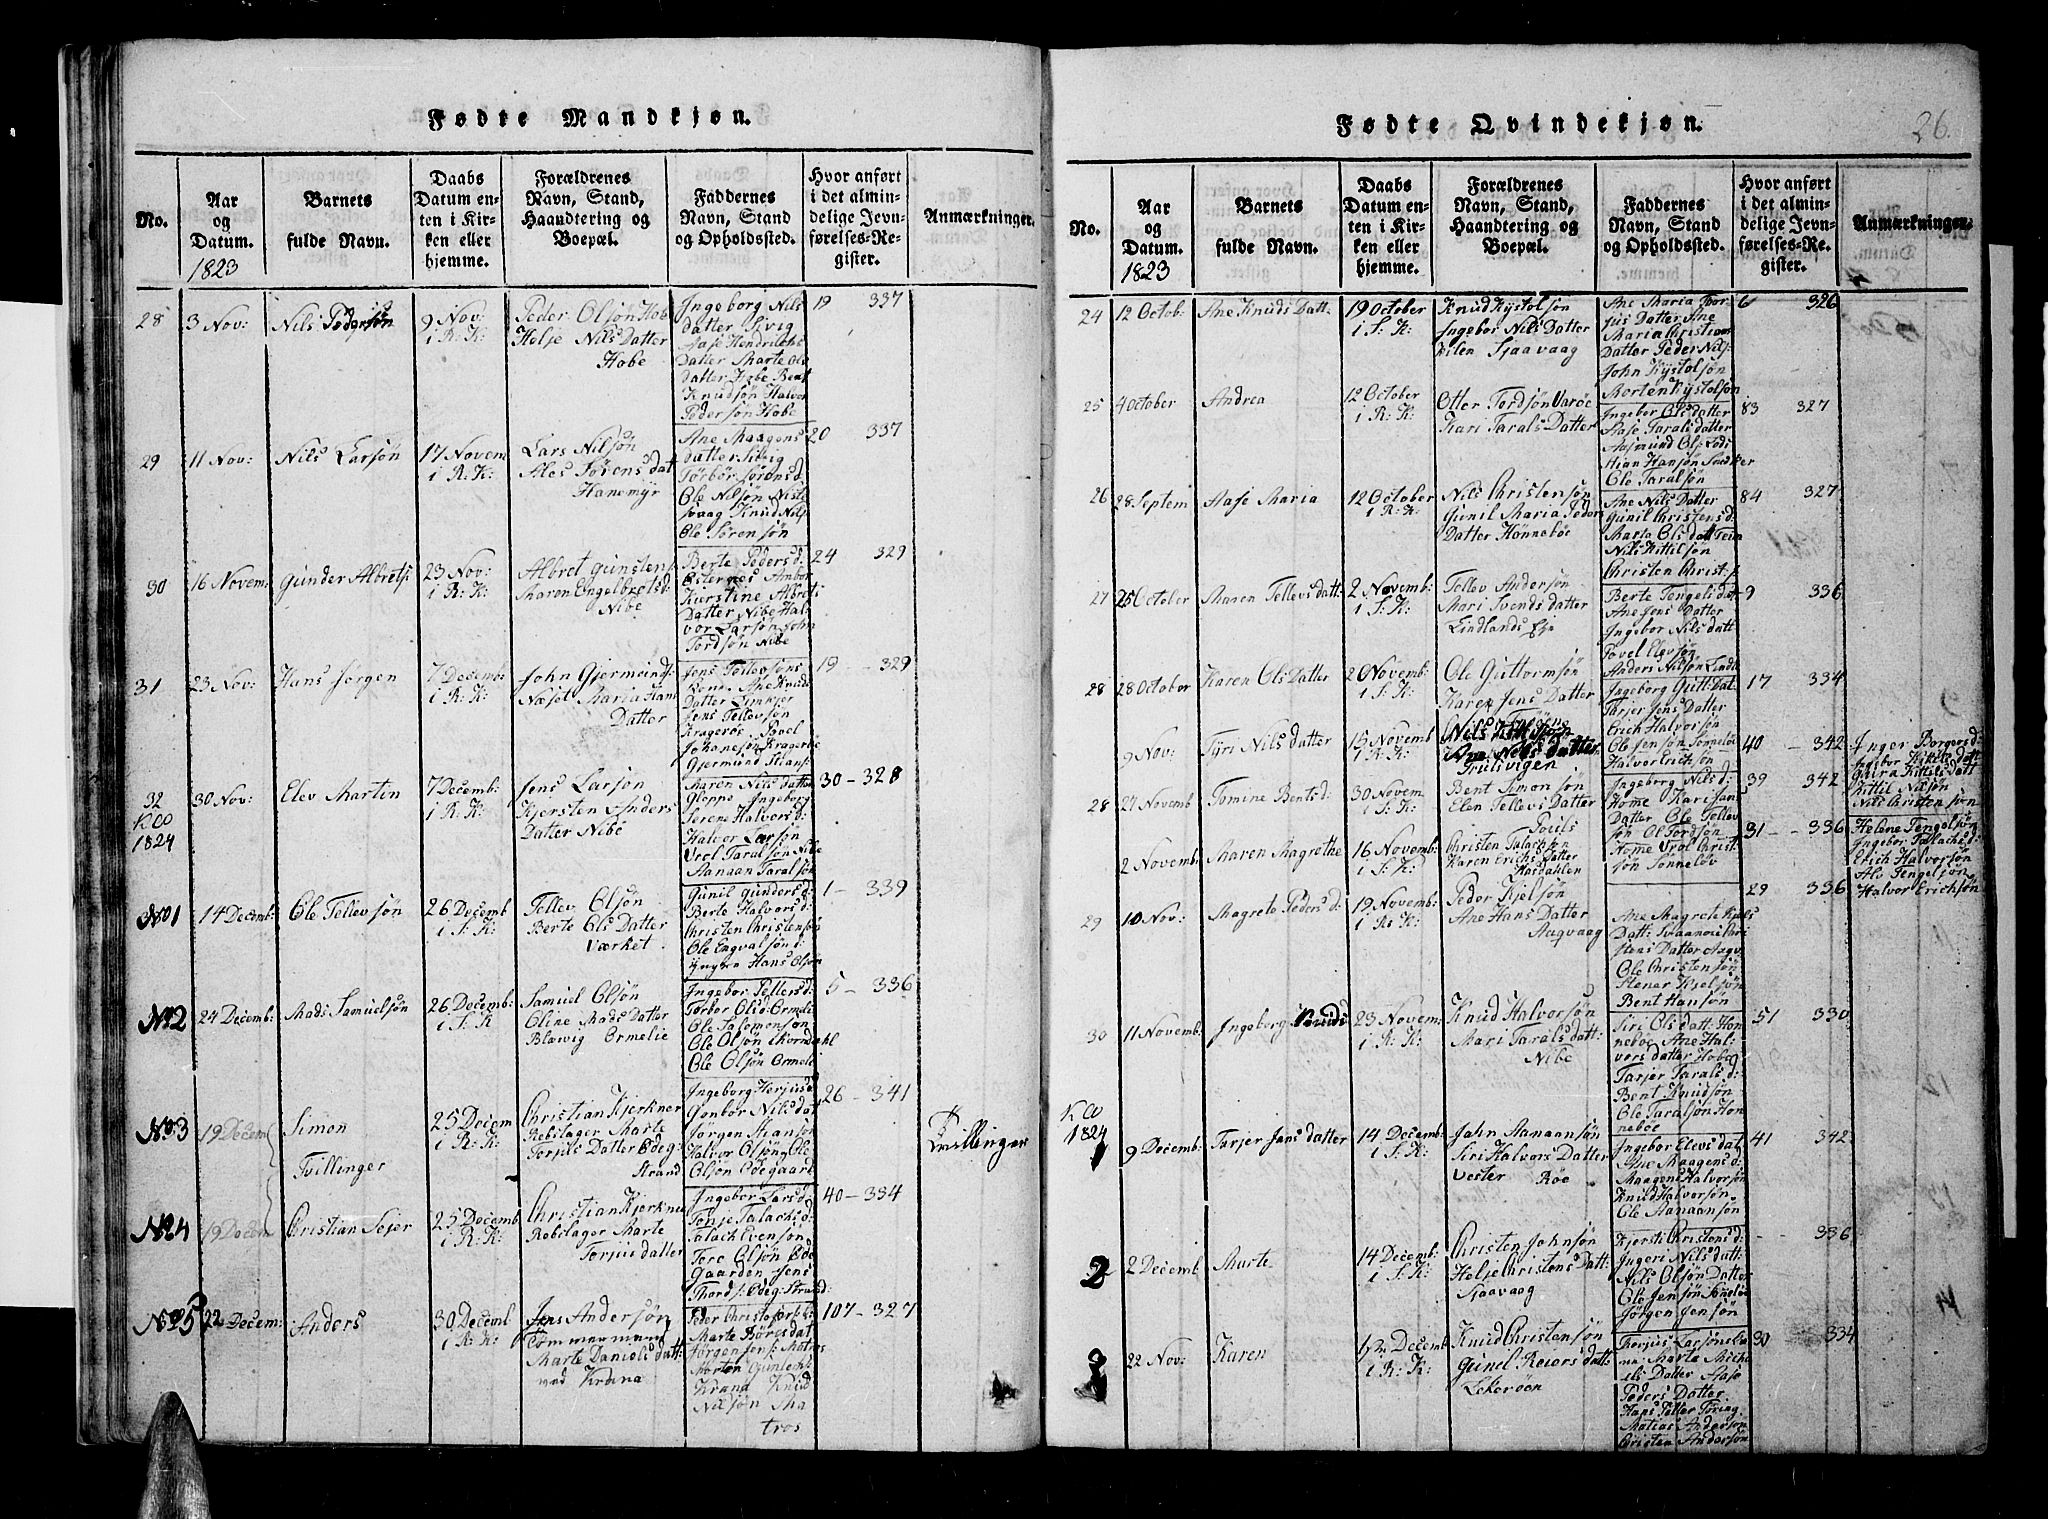 Fødte Mandkjøn.
No.
Aar
og
Datum.
1823
Barnets
fulde Navn.
Daabs
Datum en-
ten i Kir-
ken eller
hjemme.
Forældrenes
Navn, Stand,
Haandtering og
Boepæl.
Faddernes
Navn, Stand
og Opholdssted.
Hvor anført
i det almin-
delige Jevn-
førelses-Re-
gister.
Anmærkninger.
28
3 Nov:
Nils Pedersøn
9 Nov:
i R: K:
Peder Olsøn Hobe
Helje Nils Datter
Hobe
Ingeborg Nils
datter
Datter Marte Ols
datter Hobe Bent
Knudsøn Halvor
Pedersøn Hobe
19 337
29
11 Nov:
Nils Larsøn
17 Novem
i R: K:
Lars Nilsøn
Ales Sørens dat
Hanemÿr
Ane Maagens
datter
Ole Nilsøn
Knud Nils
Ole Sørensøn
20 337
30
16 Novem:
Gunder Albrets:
23 Nov:
i R: K:
Albret Gunstens:
Maren Engelbretsd:
Nibe
Berte Peders d.
Kirstine Albret
Datter Nibe Hal-
vor Larsøn John
Tordsøn Nibe
24 329
31
23 Nov:
Hans Jørgen
7 Decemb:
i R: K:
John Gjermunds:
Næset Maria Hans
Datter
Ane Knuds
Datter
Jens Tellevsøn
Kragerøe Povel
Johanesøn Kragerøe
Gjermund Stians:
19 — 329
32
K Co
1824
30 Nov:
Elev Martin
7 Decemb:
i R: K:
Jens Larsøn
Kjersten Anders
Datter Nibe
Maren Nils datter
Gloppe Ingebor
Serene Halvors d:
Halvor Larsøn
Vrol Taralsøn Nibe
Aanaan Taralsøn
30 — 328
No 1
14 Decemb:
Ole Tellevsøn
26 Decemb
i S: K:
Tellev Olsøn
Berte Ols Datter
Værket
Gunil Gunders d:
Berte Halvors d:
Christen Christensøn
Ole Engvalsøn
Hans Olsøn
1 — 339
No 2
24 Decemb:
Mads Samuelsøn
26 Decemb:
i S: K
Samuel Olsøn
Oline Mads Datter
Blævig Ormelie
Ingebor Tellefs d:
Torbor Ols d: Ormeli
Ole Salomonsøn
Ole Olsøn
Ole Olsøn Ormeli
5 — 336
No 3
19 Decem
Simon
Tvillinger
25 Decem
i R: K:
Christian Kjerkner
Rebslager Marte
Torjus Datter Ødeg:
Strand
Ingeborg Torjus d
Gonbor Nils dat
Jørgen Stiansøn
Halvor Olsøn Ole
Olsøn Ødegaard
26 — 341
Tvillinger
No 4
19 Decem
Christian Sejer
25 Decemb
i R: K:
Christian Kjerkner
Rebslager Marte
Torjus datter
Ingebor Lars d:
Tonje Talachs d:
Talach Evensøn
Tore Olsøn Øde
Gaarden Jens
Thords: Ødeg: Strand:
40 — 334
No 5
22 Decem:
Anders
30 Decemb
i R: K:
Jens Andersøn
Tømmermand
Marte Daniels datt:
ved Krana
Peder Christofers:
Marte Børes dat
Jørgen Jens: Matros
Morten
Krana Knud
Nilsøn Ma
tros
107 — 327
Fødte Qvindekjøn.
26.
No.
Aar
og
Datum.
1823
Barnets
fulde Navn.
Daabs
Datum en-
ten i Kir-
ken eller
hjemme.
Forældrenes
Navn, Stand,
Haandtering og
Boepæl.
Faddernes
Navn, Stand
og Opholdssted.
Hvor anført
i det almin-
delige Jevn-
førelses-Re-
gister.
Anmærkninger.
24
12 Octob:
Ane Knuds Datt:
19 October
i S: K:
Knud Kystolsøn
Ingebor Nils Datter
Sjaavaag
Ane Maria Tor-
jus Datter Ane
Maria Christians
Datter Peder Nils:
John Kystolsøn
Morten Kystolsøn
6 326
25
4 October
Andrea
12 October
i R: K:
Otter Tordsøn Varøe
Kari Tarals Datter
Ingebor Ols datter
Aase Tarals datter
Aasmund Ols:
Ole Taralsøn
83 327
26
28 Septem
Aase Maria
12 October
i R: K:
Nils Christensøn
Gunil Maria Peders
Datter Hønnebøe
Ane Nils Datter
Gunil Christens d:
Maria Ols datt
Nils Kittilsøn
Christen Christ:
84 327
27
25 October
Maren Tellevs datt:
2 Novemb:
i S: K:
Tellev Andersøn
Mari Svends datter
Lindlands Eje
Berte Tengels dat
Ane Jens Datter
Ingebor Nils datt
Povel Elevsøn
Anders Nilsøn Lindl
9 336
28
28 October
Karen Ols Datter
2 Novemb:
i S: K:
Ole Guttormsøn
Karen Jens Datter
Ingeborg Gutt: Dat
Tarjer Jens Datter
Erich Halvorsøn
Ole Jensøn Sønneløv
Halvor Erichsøn
17 334
9 Nov:
Tÿri Nils datter
15 Novemb
i R: K:
Ane Nils datter
Trulsvigen
40 — 342
Inger Borgers d:
Ingebor Kittils datt
Guira Kittils Datt
Kittil Nilsøn
Nils Christensøn
28
24 Novemb
Tomine Bents d:
30 Novem
i S: K:
Bent Simonsøn
Elen Tellevs Datter
Ingeborg Nils d:
Home Kari Jans
Datter Ole Tellev
søn Ol Tordsøn
Home Vrol Christ
søn Sønneløv
39 342
2 Novemb:
Maren Magrethe
16 Novemb:
i S: K:
Pouls
Christen Talachsøn
Karen Erichs Datter
Hasdahlen
31 — 336
Helene Tengelsøn
Ingebor Talachs d:
Erich Halvorsøn
Als Tengelsøn
Halvor Erichsøn
29
10 Nov:
Magrete Peders d:
19 Novemb:
i R: K:
Peder Kjelsøn
Ane Hans Datter
Aaqvaag
Ane Magrete Kjels
Datt: Svaanoe
Hans Datter Aaqv
Ole Christensøn
Stener Kjelsøn
Bent Hansøn
29 336
30
11 Novemb:
Ingeborg Knuds
23 Novem:
i R: K:
Knud Halvorsøn
Mari Tarals datt:
Nibe
Siri Ols datt: Høn-
nebøe Ane Hal-
vors datter Hobe
Tarjer Tarals d:
Bent Knudsøn
Ole Taralsøn Høn
nebøe
51 330
K Co
1824
1
9 Decemb:
Tarjer Jans datter
14 Decemb:
i S: K:
John Aanaansøn
Siri Halvors Datter
Vester Røe
Ingebor Elevs dat
Ane Maagens d:
Maagene Halvorsøn
Knud Halvorsøn
Ole Aanaansøn
41 342
2
2 Decemb
Marte
14 Decemb:
i S: K:
Christen Johnsøn
Helje Christens Datt:
Sjaavaag
Kjersti Christens d:
Ingeri Nils datt:
Nils Olsøn Datter
Ole Jensøn Sønneløv
Jørgen Jensøn
— 336
3
22 Nov:
Karen
Decemb
i R: K:
Knud Christensøn
Gunel Reiers datt:
Lekerøen
Marte Miche
els Datter Aase
Peders Datter
Hans Peller
Matias Andersøn
Christen Andersøn
30 334